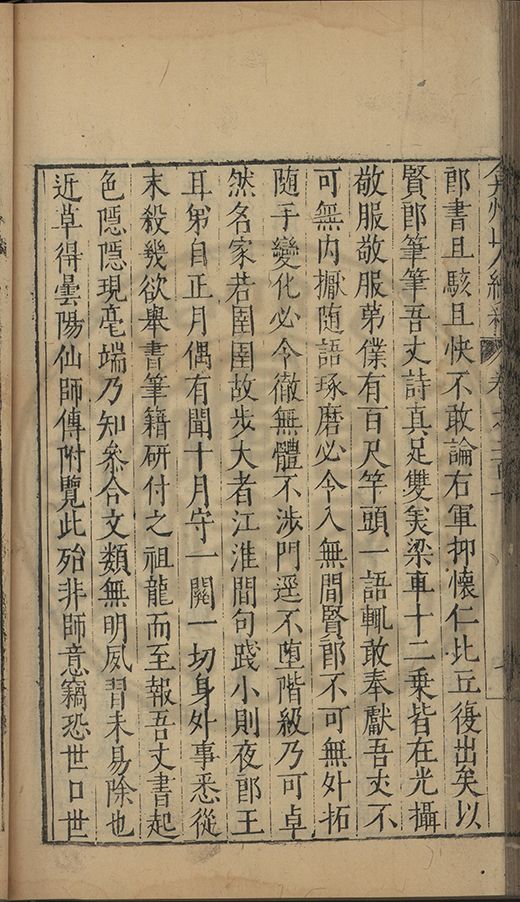 弇州山人續稿 卷之二百 十
郎書且駭且快不敢論右軍抑懷仁比丘復出矣以
賢郎筆筆吾丈詩真足雙矣梁車十二乗皆在光攝
敬服敬服苐僕有百尺竿頭一語輒敢奉獻吾丈不
可無内擫随語琢磨必令入無間賢郎不可無外拓
随手變化必令徹無體不涉門逕不堕階級乃可卓
然名家若圉圉故歩大者江淮間句踐小則夜郎王
耳弟自正月偶有聞十月守一關一切身外事悉從
末殺幾欲舉書筆籍研付之祖龍而至報吾丈書起
色隠隠現毫端乃知叅合文類無明夙習未易除也
近草得曇陽仙師傳附覽此殆非師意竊恐世口世